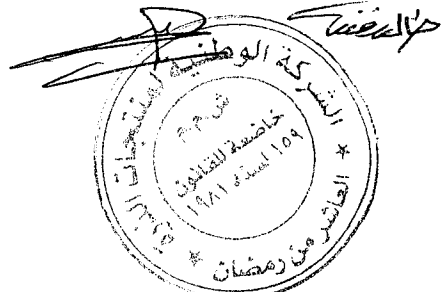 الشركة الوطنية لمنتجات الذرة
ش.م.م
خاضعة للقانون
١٥٩ لسنة ١٩٨١
* العاشر من رمضان *